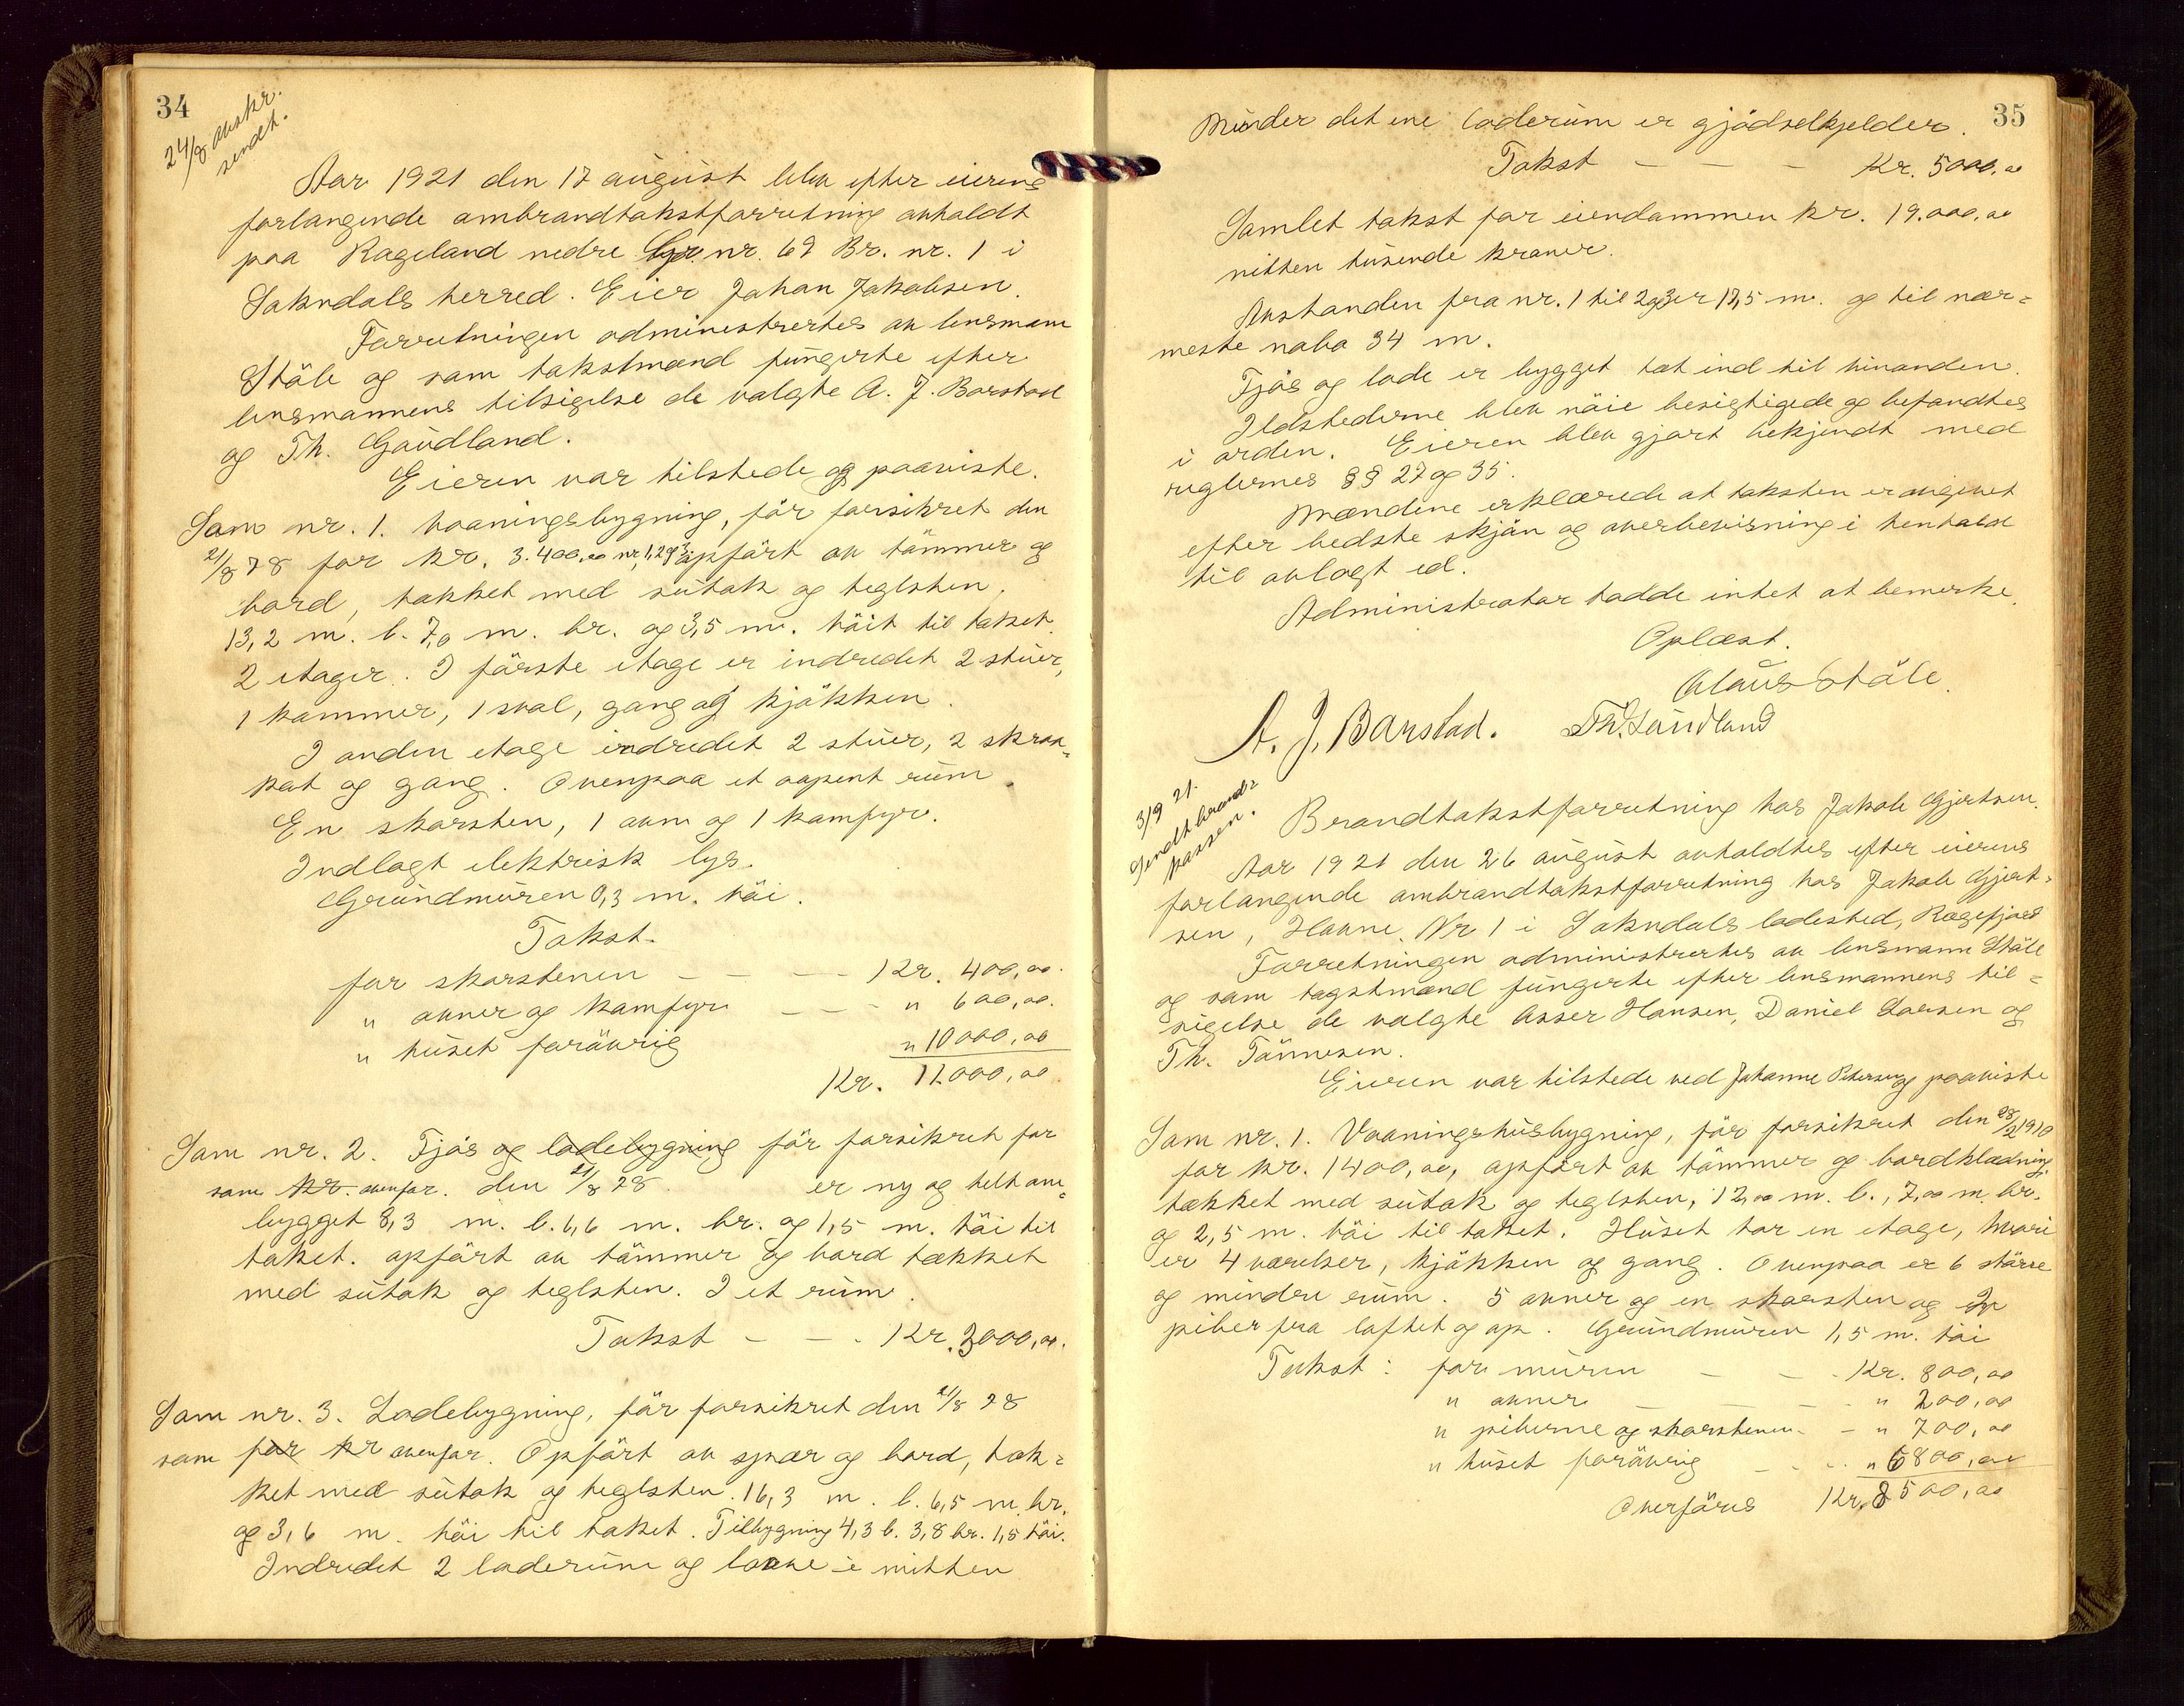 34
24/8 avskr.
sendt.
Aar 1921 den 17 august blev efter eierens
forlangende ombrandtakstforretning avholdt
paa Rageland nedre Gr. nr. 69 Br. nr. 1 i
Sokndals herred. Eier Johan Jakobsen.
Forretningen administrertes av lensmann
Ståle og som takstmænd fungerte efter
lensmannens tilsigelse de valgte A. J. Barstad
og Th. Gaudland.
Eieren var tilstede og paaviste.
Som nr. 1. Vaaningsbygning, før forsikret den
21/8 78 for kr. 3.400,00 nr. 1, 2 og 3 opført av tømmer og
bord, tækket med sutak og teglsten,
13,2 m. l. 7,0 m. br. og 3,5 m. høit til taket.
2 etager. I første etage er indredet 2 stuer,
1 kammer, 1 sval, gang og kjøkken.
I anden etage indredet 2 stuer, 2 skraa-
kot og gang. Ovenpaa et aapent rum.
En skorsten, 1 ovn og 1 komfyr.
Indlagt elektrisk lys.
Grundmuren 0,3 m. høi.
Takst.
for skorstenen — — — Kr. 400,00.
" ovner og komfyr — — " 600,00.
" huset forøvrig " 10000,00
Kr. 11000,00
Som nr. 2. Fjøs og ladebygning før forsikret for
som kr. ovenfor. den 21/8 78. er ny og helt om-
bygget 8,3 m. l. 6,6 m. br. og 1,5 m. høi til
taket. opført av tømmer og bord tækket
med sutak og teglsten. I et rum.
Takst — — . Kr. 3000,00.
Som nr. 3. Ladebygning, før forsikret den 21/8 78
som for kr ovenfor. Opført av spær og bord, tæk-
ket med sutak og teglsten. 16,3 m. l. 6,5 m. br.
og 3,6 m. høi til taket. Tilbygning 4,3 l. 3,8 br. 1,8 høi.
Indredet 2 laderum og lovve i mitten
35
Under det ene laderum er gjødselkjelder.
Takst — — — Kr. 5000,00
Samlet takst for eiendommen kr. 19.000,00
nitten tusende kroner.
Avstanden fra nr. 1 til 2 og 3 er 17,5 m. og til nær-
meste nabo 34 m.
Fjøs og lade er bygget tæt ind til hinanden.
Ildstederne blev nøie besigtigede og befandtes
i orden. Eieren blev gjort bekjendt med
reglernes §§ 27 og 35.
Mændene erklærede at taksten er avgivet
efter bedste skjøn og overbevisning i henhold
til avlagt ed.
Administrator hadde intet at bemerke.
Oplæst.
Claus Ståle.
A. J. Barstad. Th. Gaudland
3/9 21.
Sendt brand-
kassen.
Brandtakstforretning hos Jakob Gjertsen.
Aar 1921 den 26 august avholdtes efter eierens
forlangende ombrandtakstforretning hos Jakob Gjert-
sen, Havne. Nr 1 i Sokndals ladested, Rægefjord
Forretningen administrertes av lensmann Ståle
og som tagstmænd fungerte efter lensmannens til-
sigelse de valgte Asser Hansen, Daniel Larsen og
Th. Tønnesen.
Eieren var tilstede ved Johanne Petersen og paaviste
Som nr. 1. Vaaningshusbygning, før forsikret den 28/2 1910
for kr. 1400,00, opført av tømmer og bordklædning,
tækket med sutak og teglsten, 12,00 m. l., 7,00 m. br.
og 2,5 m. høi til taket. Huset har en etage, hvori
er 4 værelser, kjøkken og gang. Ovenpaa er 6 større
og mindre rum. 5 ovner og en skorsten og
piber fra loftet og op. Grundmuren 1,5 m. høi
Takst: for muren — — . Kr. 800,00
" ovner — — — " 200,00
" piberne og skorstenen — " 700,00
" huset forøvrig — . . " 6800,00
Overføres Kr. 8500,00